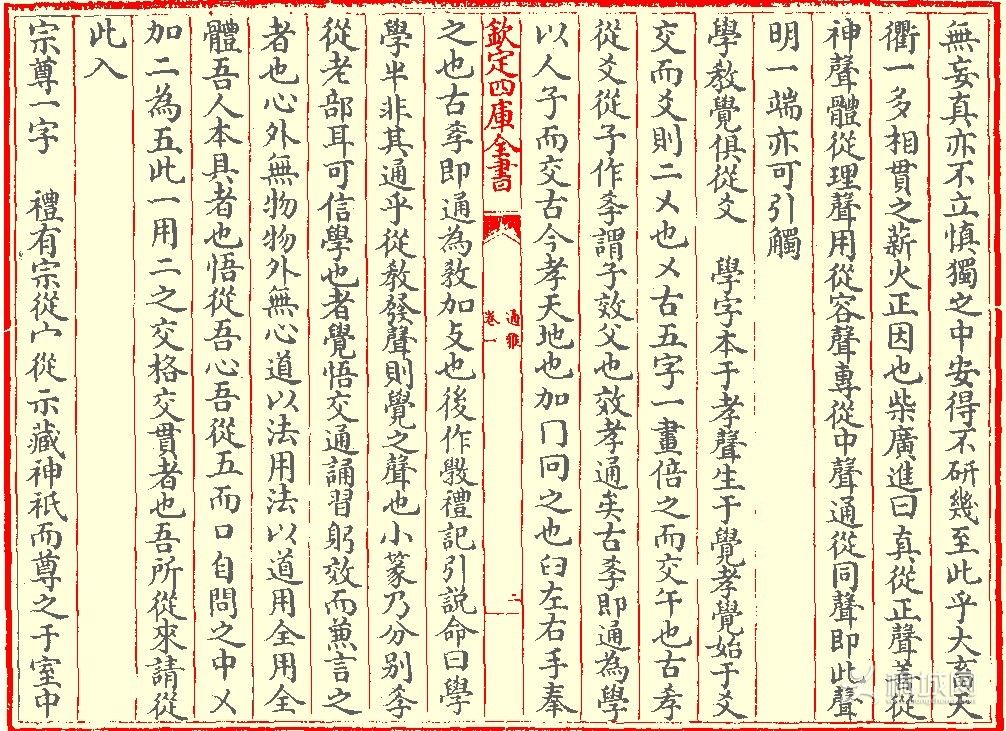 無妄真亦不立慎獨之中安得不研幾至此乎大畜天
衢一多相貫之薪火正因也柴廣進曰真從正聲善從
神聲體從理聲用從容聲專從中聲通從同聲即此聲
明一端亦可引觸
學教覺俱從爻 學字本于孝聲生于覺孝覺始于爻
交而爻則二㐅也㐅古五字一畫倍之而交午也古孝
從爻從子作孝謂子效父也效孝通矣古孝即通為學
以人子而交古今孝天地也加冂冋之也臼左右手奉
欽定四庫全書
通雅
卷一
二
之也古孝即通為教加攴也後作斆禮記引説命曰學
學半非其通乎從教發聲則覺之聲也小篆乃分别孝
從老部耳可信學也者覺悟交通誦習躬效而兼言之
者也心外無物物外無心道以法用法以道用全用全
體吾人本具者也悟從吾心吾從五而口自問之中㐅
加二為五此一用二之交格交貫者也吾所從來請從
此入
宗尊一字 禮有宗從宀從示藏神祇而尊之于室中